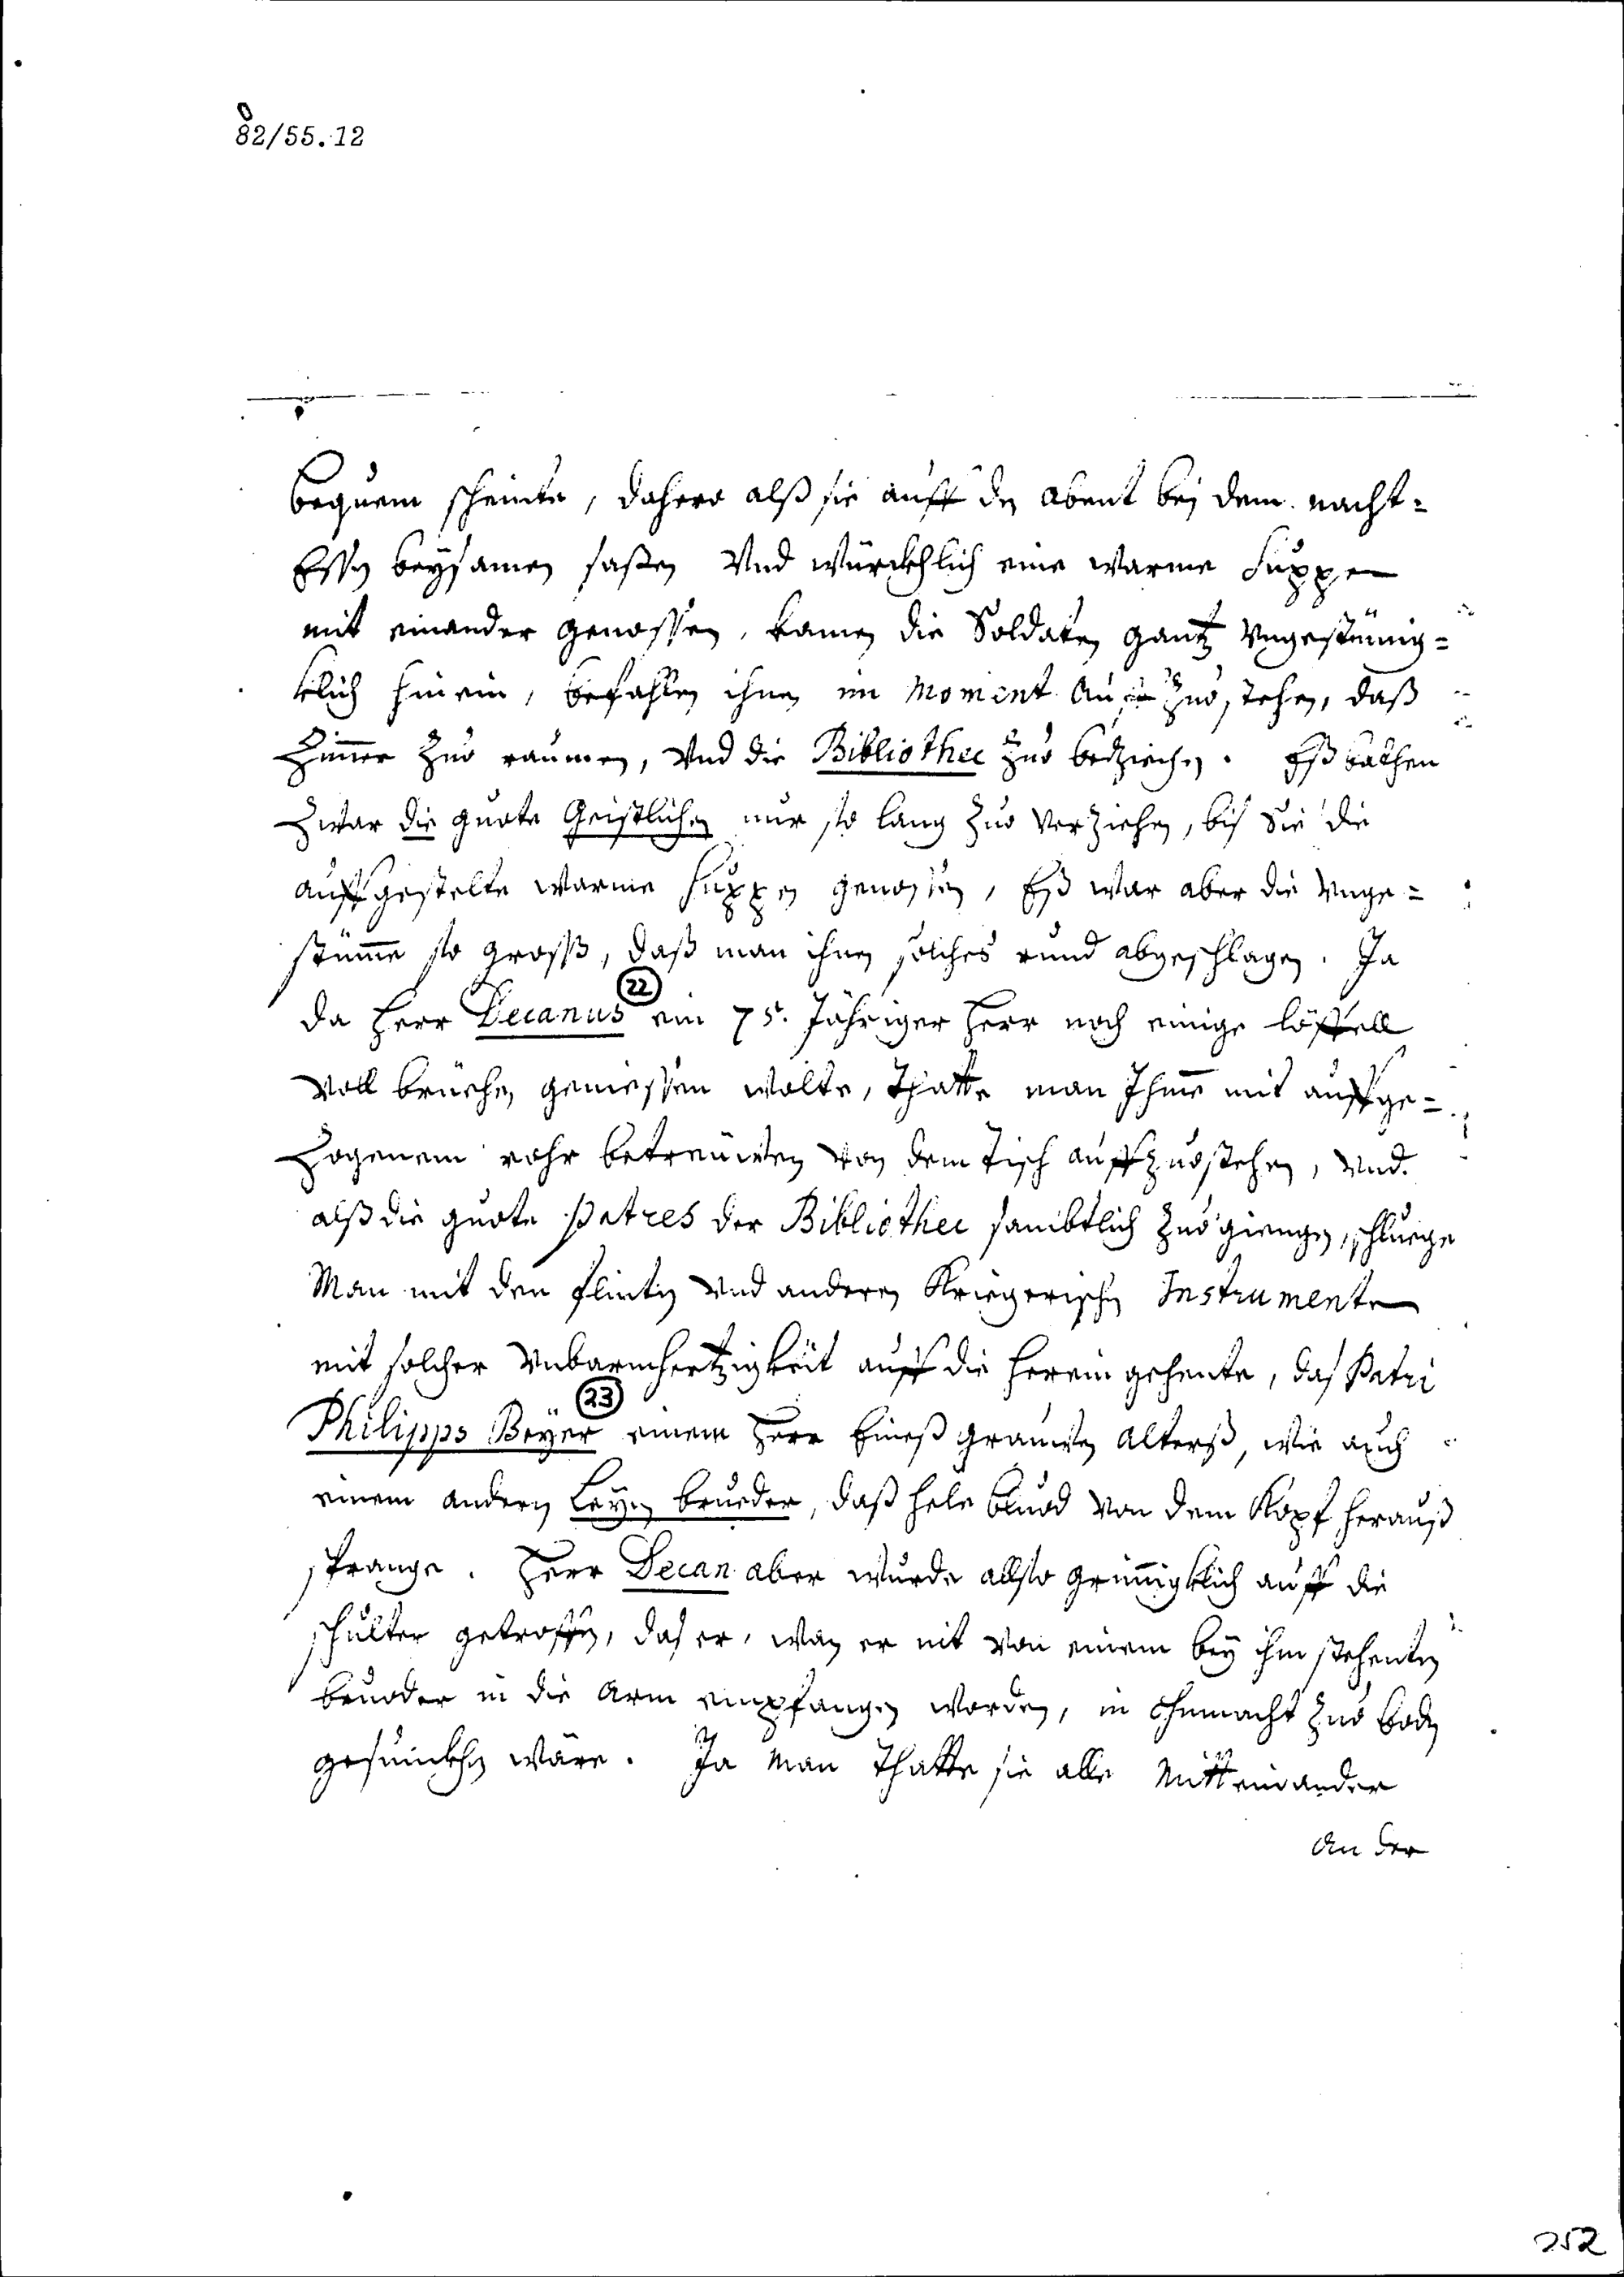 82/55.12
bequem scheinte, dahero alß sie auff den abent bej dem nacht=
Essen beÿsamen saßen Vnd würckhlich eine warme Suppen
mit einander genossen, kamen die Soldaten gantz Vngestümig=
klich hinein, befahlen ihnen im Moment auff Zuo stehen, daß
Zimer Zuo raumen, Vnd die Bibliothec Zuo beZiehen. Eß bathen
Zwar die guote Geistlichen nur so lang Zuo VerZiehen, bis Sie die
auffgestelte warme suppen genossen, Eß war aber die Vnge=
stüme so groß, daß man ihnen solches rund abgeschlagen. Ja
da Herr Decanus (22) ein 75. Jähriger Herr noch einige löffell
Voll brüehen geniessen wolte, thatte man Ihme mit auffge=
Zogenem rohr betreüwen Von dem tisch auffZuostehen, Vnd
alß die guote patres der Bibliothec sambtlich Zuo giengen, schluege
Man mit den flinten Vnd anderen Kriegerischen Instrumenten
mit solcher Vnbarmhertzigkeit auff die hereingehente, das Patri
Philipps Beÿer (23) einem Herr Eineß grauwen Alterß, wie auch
einem andern Leÿen bruoder, daß hele bluod Von dem Kopf herauß
sprange. Herr Decan aber wurde allso grimigklich auff die
schulter getroffen, das er, wan er nit Von einem beÿ ihm stehenten
bruoder in die Arm empfangen worden, in ohnmacht Zuo boden
gesunckhen wäre. Ja Man thatte sie alle Mitteinander
an der
252